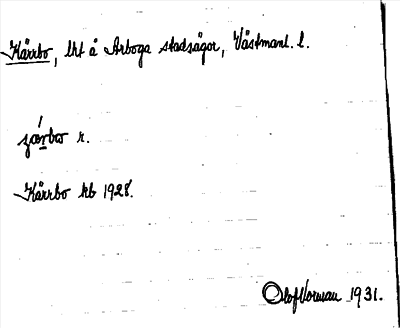 Kärrbo, lht å Arboga stadsägor, Västmanl. l.
r.
Kärrbo kb 1928.
Olof Vorman 1931.